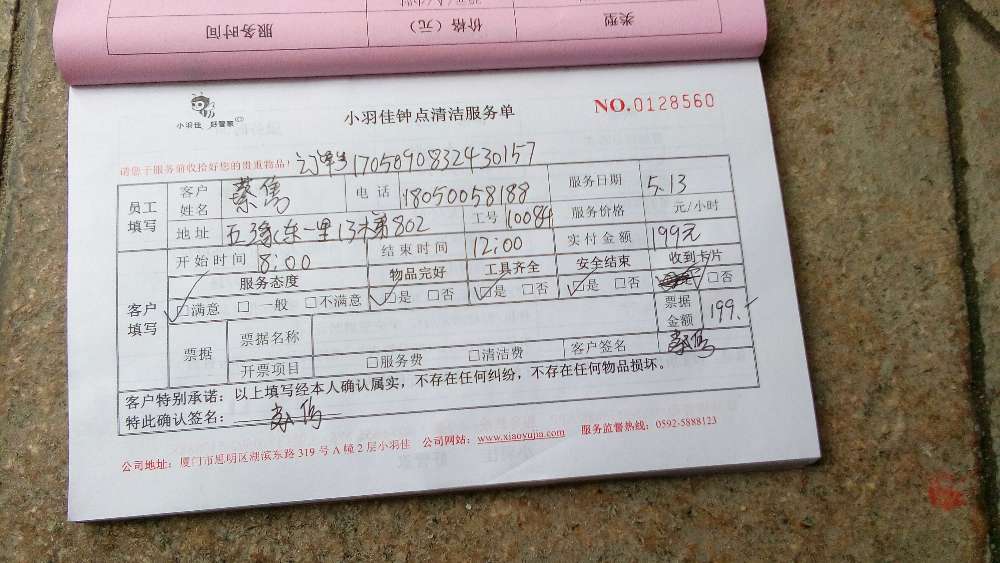 服务时间 价格（元） 类型
小羽佳 好管家
小羽佳钟点清洁服务单
NO.0128560
请您于服务前收拾好您的贵重物品！
1705890832430157
员工填写 客户姓名 蔡隽 电话 18050058188 服务日期 5.13
地址 五缘东一里13梯802 工号 10084 服务价格 元/小时
开始时间 8:00 结束时间 12:00 实付金额 199元
客户填写 服务态度 物品完好 工具齐全 安全结束 收到卡片
☑满意 □一般 □不满意 ☑是 □否 ☑是 □否 ☑是 □否 □否
票据 票据名称 票据金额 199.-
开票项目 □服务费 □清洁费 客户签名 蔡隽
客户特别承诺：以上填写经本人确认属实，不存在任何纠纷，不存在任何物品损坏。
特此确认签名： 蔡隽
公司地址：厦门市思明区湖滨东路319号A幢2层小羽佳 公司网站：www.xiaoyujia.com 服务监督热线：0592-5888123